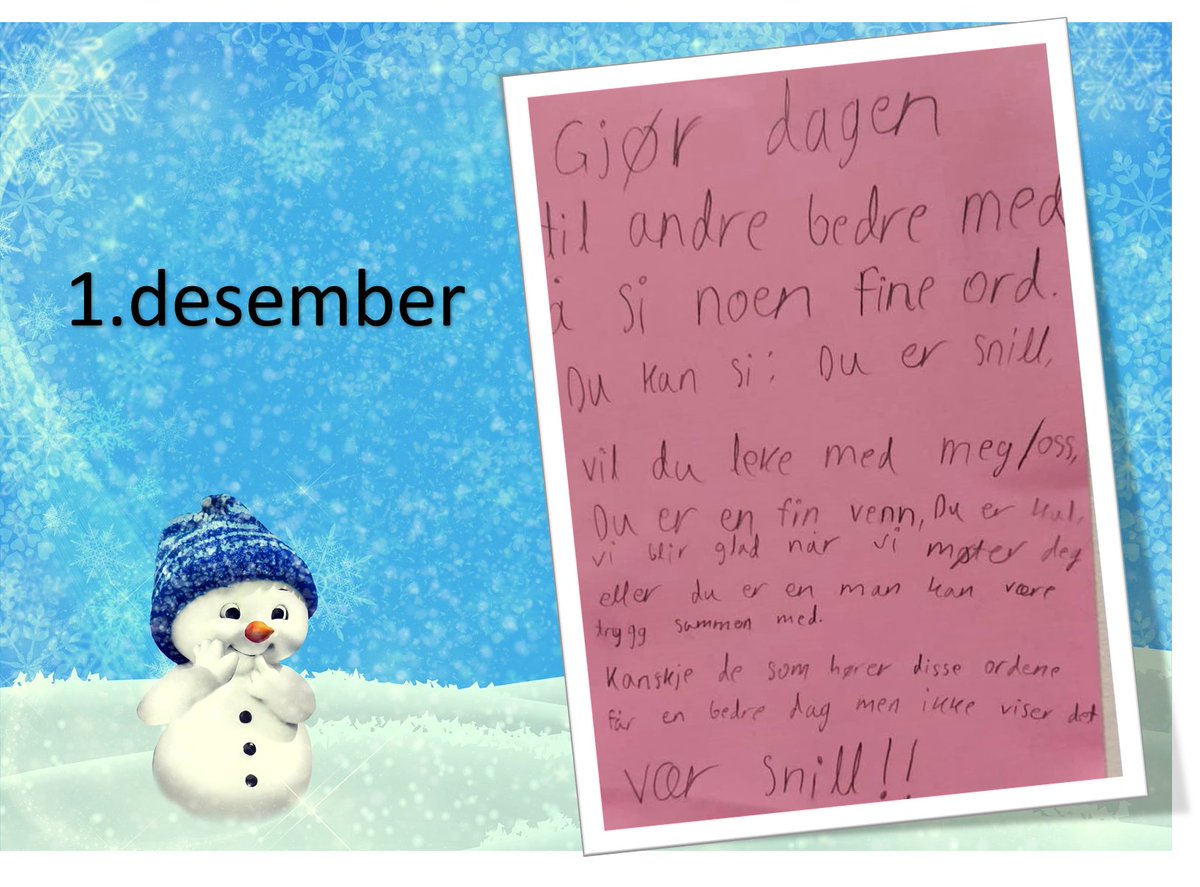 1.desember
Gjør dagen
til andre bedre med
å si noen fine ord.
Du kan si: Du er snill,
vil du leke med meg/oss,
Du er en fin venn, Du er kul,
vi blir glad når vi møter deg
eller du er en man kan være
trygg sammen med.
Kanskje de som hører disse ordene
får en bedre dag men ikke viser det
vær snill!!